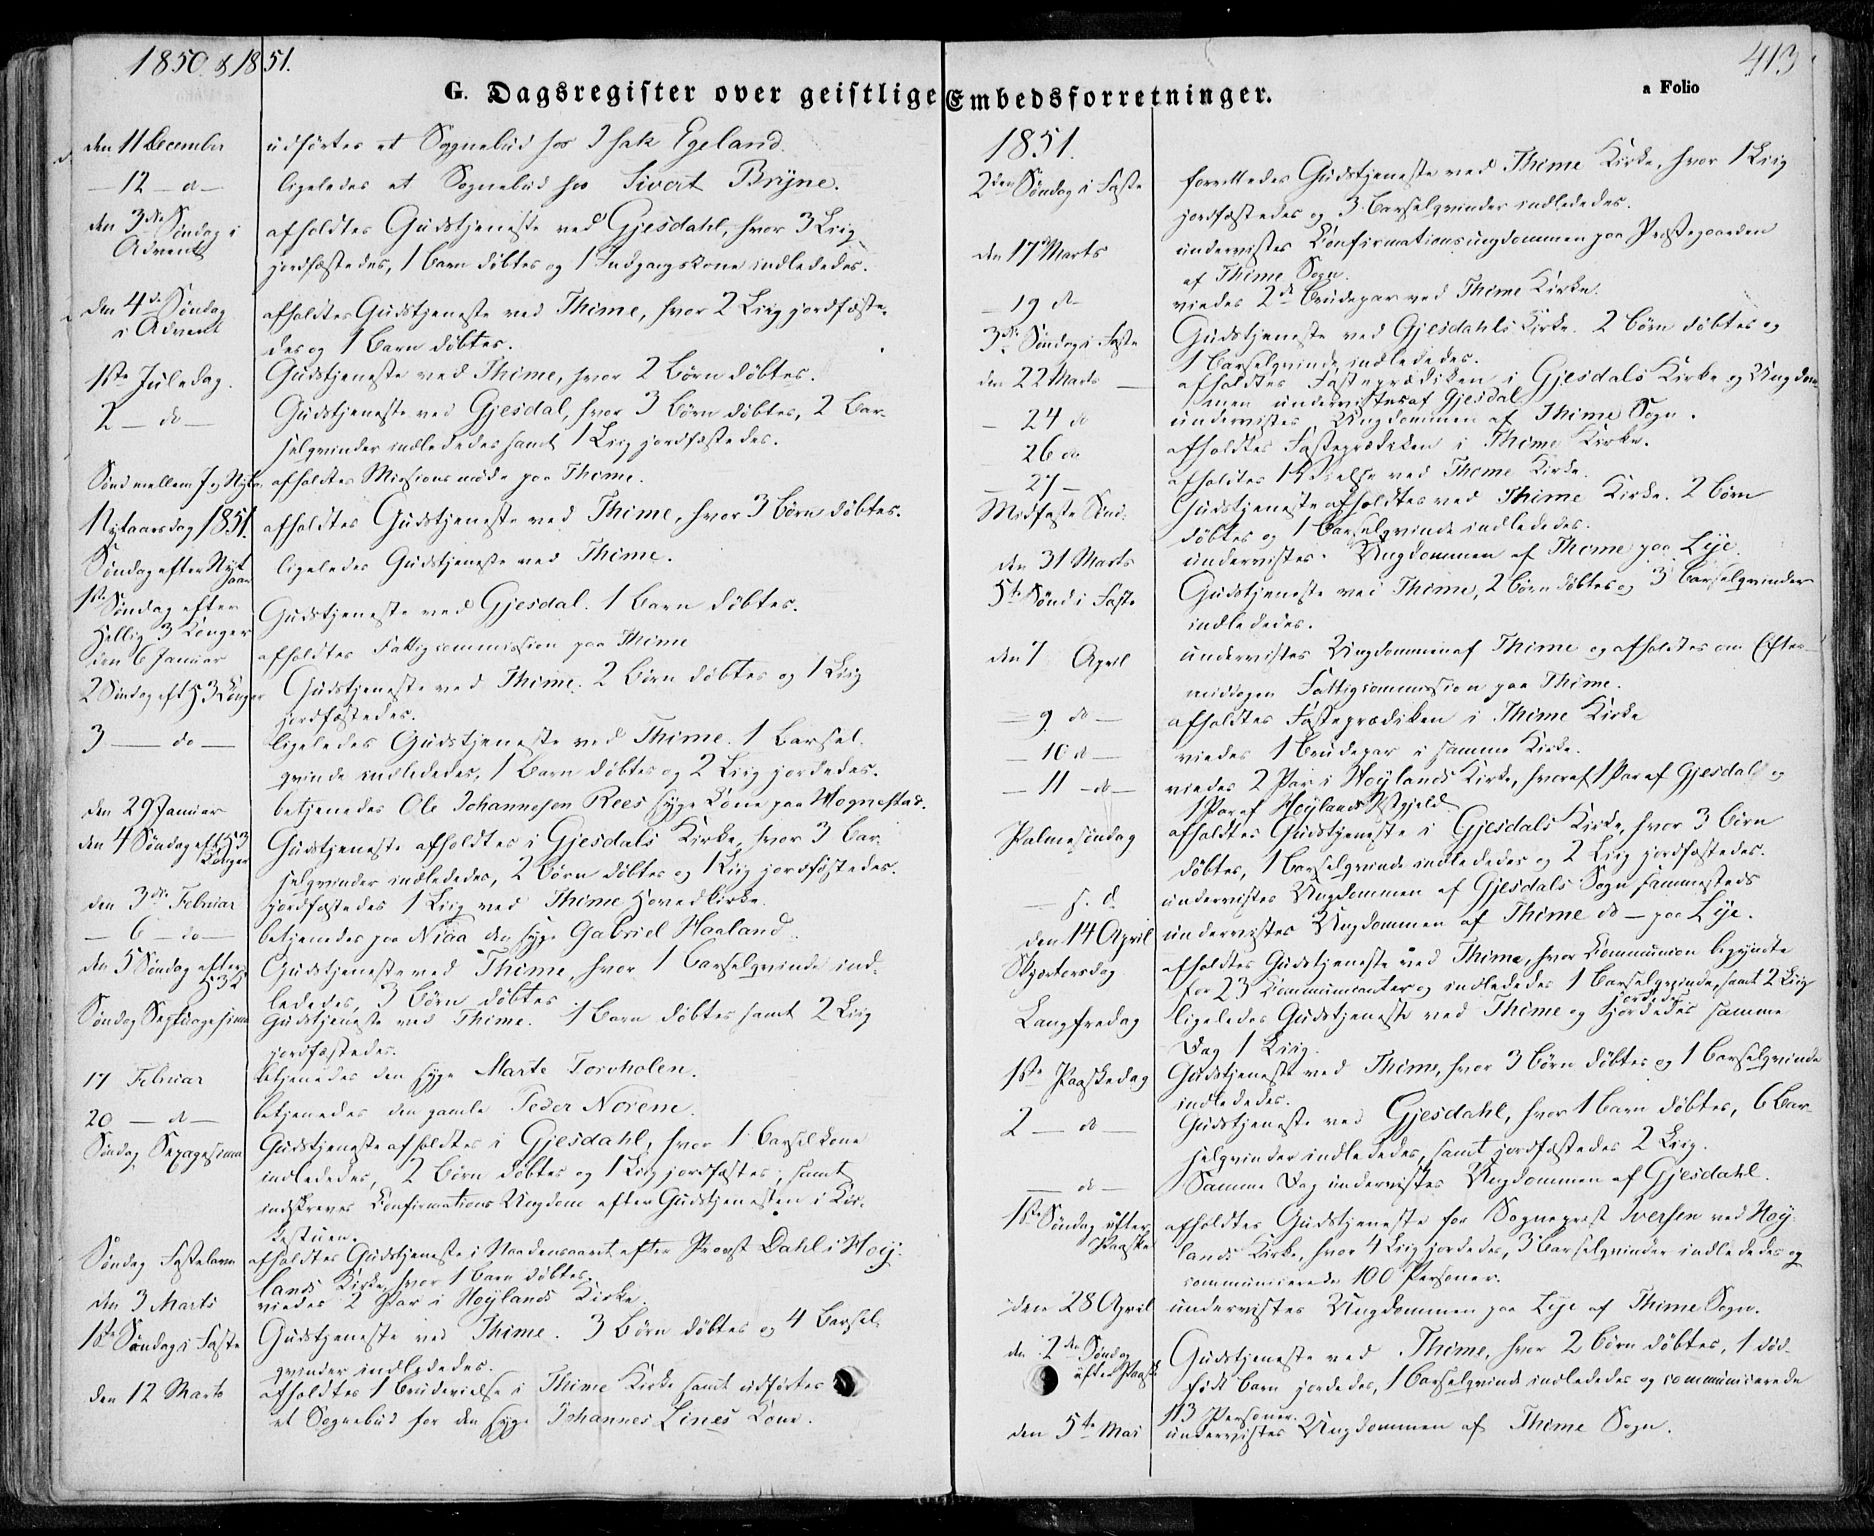 1850 & 1851.
413
G. Dagsregister over geistlige Embedsforretninger.
a Folio
den 11 December udførtes et Sognebud hos Isak Egeland.
— 12 — d — ligeledes et Sognebud hos Sivert Bryne.
den 3die Søndag i afholdtes Gudstjeneste ved Gjesdahl, hvor 3 Liig
Advent jordfæstedes, 1 Barn døbtes og 1 Indgangskone indlededes.
den 4de Søndag afholdtes Gudstjeneste ved Thime, hvor 2 Liig jordfæste-
i Advent des og 1 Barn døbtes.
1ste Juledag. Gudstjeneste ved Thime, hvor 2 Børn døbtes.
2 — do — Gudstjeneste ved Gjesdal, hvor 3 Børn døbtes, 2 Bar-
selqvinder indlededes samt 1 Liig jordfæstedes.
Sønd mellem J og Nyt. afholdtes Missionsmøde paa Thime.
Nytaarsdag 1851. afholdtes Gudstjeneste ved Thime, hvor 3 Børn døbtes.
Søndag efter Nyt
aar ligeledes Gudstjeneste ved Thime.
1ste Søndag efter
Hellig 3 Konger Gudstjeneste ved Gjesdal. 1 Barn døbtes.
den 6 Januar afholdtes Fattigcommission paa Thime
2 Søndag eft H 3 Konger Gudstjeneste ved Thime. 2 Børn døbtes og 1 Liig
jordfæstedes.
3 — do — ligeledes Gudstjeneste ved Thime. 1 Barsel-
qvinde indlededes, 1 Barn døbtes og 2 Liig jordedes.
den 29 Januar betjenedes Ole Johannesen Rees syge Kone paa Hognestad.
den 4 Søndag eft H 3
Konger Gudstjeneste afholdtes i Gjesdals Kirke, hvor 3 Bar-
selqvinder indlededes, 2 Børn døbtes og 1 Liig jordfæstedes.
den 3die Februar jordfæstedes 1 Liig ved Thime Hovedkirke.
— 6 — do — betjenedes paa Niaa den syge Gabriel Haaland.
den 5 Søndag efter
H 3 K Gudstjeneste ved Thime, hvor 1 Barselqvinde ind-
lededes, 3 Børn døbtes.
Søndag Septuagesima Gudstjeneste ved Thime. 1 Barn døbtes samt 2 Liig
jordfæstedes.
17 Februar betjenedes den syge Marte Torvholen.
20 — d — betjenedes den gamle Peder Norem.
Søndag Sexagesima Gudstjeneste afholdtes i Gjesdahl, hvor 1 Barselkone
indlededes, 2 Børn døbtes og 1 Liig jordfæstes; samt
indskreves Confirmations Ungdom efter Gudstjenesten i Kir-
kestuen.
Søndag Fastelavn afholdtes Gudstjeneste i Naadensaaret efter Provst Dahl i Høy-
lands Kirke, hvor 1 Barn døbtes.
den 3 Marts viedes 2 Par i Høylands Kirke.
1ste Søndag i Faste Gudstjeneste ved Thime. 3 Børn døbtes og 4 Barsel-
qvinder indlededes.
den 12 Marts afholdtes 1 Brudevielse i Thime Kirke samt udførtes
et Sognebud for den syge Johannes Lines Kone.
1851.
2den Søndag i Faste forrettedes Gudstjeneste ved Thime Kirke, hvor 1 Liig
jordfæstedes og 3 Barselqvinder indlededes.
den 17 Marts undervistes Confirmationsungdommen paa Præstegaarden
af Thime Sogn.
— 19 d — viedes 2de Brudepar ved Thime Kirke.
3die Søndag i Faste Gudstjeneste ved Gjesdahls Kirke. 2 Børn døbtes og
1 Barselqvinde indlededes.
den 22 Marts — afholdtes Fasteprædiken i Gjesdals Kirke og Ungdom-
men undervistes af Gjesdal
— 24 do undervistes Ungdommen af Thime Sogn.
— 26 do afholdtes Fasteprædiken i Thime Kirke.
— 27 — afholdtes 1 Vielse ved Thime Kirke.
Midfaste Sønd: Gudstjeneste afholdtes ved Thime Kirke. 2 Børn
døbtes og 1 Barselqvinde indlededes.
den 31 Marts undervistes Ungdommen af Thime paa Lye.
5te Sønd i Faste Gudstjeneste ved Thime, 2 Børn døbtes og 3 Barselqvinder
indlededes.
den 7 April undervistes Ungdommen af Thime og afholdtes om Efter-
middagen Fattigcommission paa Thime.
— 9 do — afholdtes Fasteprædiken i Thime Kirke
— 10 d — viedes 1 Brudepar i samme Kirke.
— 11 — do — viedes 2 Par i Høylands Kirke, hvoraf 1 Par af Gjesdal og
1 Par af Høylands Pstgjeld
Palmesøndag afholdtes Gudstjeneste i Gjesdals Kirke, hvor 3 Børn
døbtes, 1 Barselqvinde indlededes og 2 Liig jordfæstedes.
— s. d. undervistes Ungdommen af Gjesdals Sogn sammesteds
den 14 April undervistes Ungdommen af Thime do — paa Lye.
Skjærtorsdag afholdtes Gudstjeneste ved Thime, hvor Communion begyndte
for 23 Communicanter og indlededes 1 Barselqvinde, samt 2 Liig
jordedes
Langfredag ligeledes Gudstjeneste ved Thime og jordedes samme
Dag 1 Liig.
1ste Paaskedag Gudstjeneste ved Thime, hvor 3 Børn døbtes og 1 Barselqvinde
indlededes.
2 — do — Gudstjeneste ved Gjesdahl, hvor 1 Barn døbtes, 6 Bar-
selqvinder indlededes, samt jordfæstedes 2 Liig.
— d — Samme Dag undervistes Ungdommen af Gjesdahl.
1ste Søndag efter
Paaske afholdtes Gudstjeneste for Sognepræst Iversen ved Høy-
lands Kirke, hvor 4 Liig jordedes, 3 Barselqvinder indlededes og
communicerede 100 Personer.
den 28 April undervistes Ungdommen paa Lye af Thime Sogn.
den 2den Søndag
efter Paaske Gudstjeneste ved Thime, hvor 2 Børn døbtes, 1 død-
født Barn jordedes, 1 Barselqvinde indlededes og communicerede
113 Personer.
den 5te Mai undervistes Ungdommen af Thime Sogn.